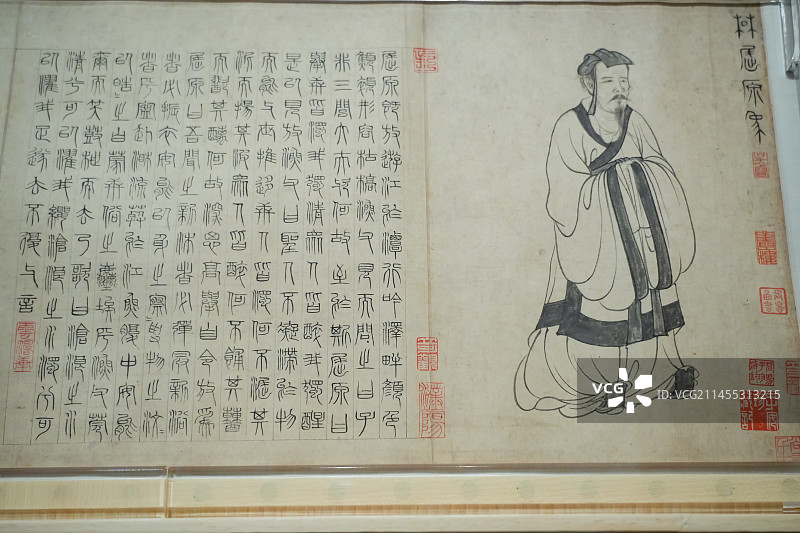 楚屈原像
屈原既放遊江於潭行吟澤畔顏色
顦顇形容枯槁漁父見而問之曰子
非三閭大夫與何故至於斯屈原曰
舉世皆濁我獨清衆人皆醉我獨醒
是以見放漁父曰聖人不凝滯於物
而能與世推移世人皆濁何不淈其
泥而揚其波衆人皆醉何不餔其糟
而歠其醨何故深思高舉自令放爲
屈原曰吾聞之新沐者必彈冠新浴
者必振衣安能以身之察察受物之汶
汶者乎寧赴湘流葬於江魚腹中安能
以皓皓之白蒙世俗之塵埃乎漁父莞
爾而笑鼓枻而去乃歌曰滄浪之水
清兮可以濯我纓滄浪之水濁兮可
以濯我足遂去不復與言
VCG
VCG.COM/211455313215